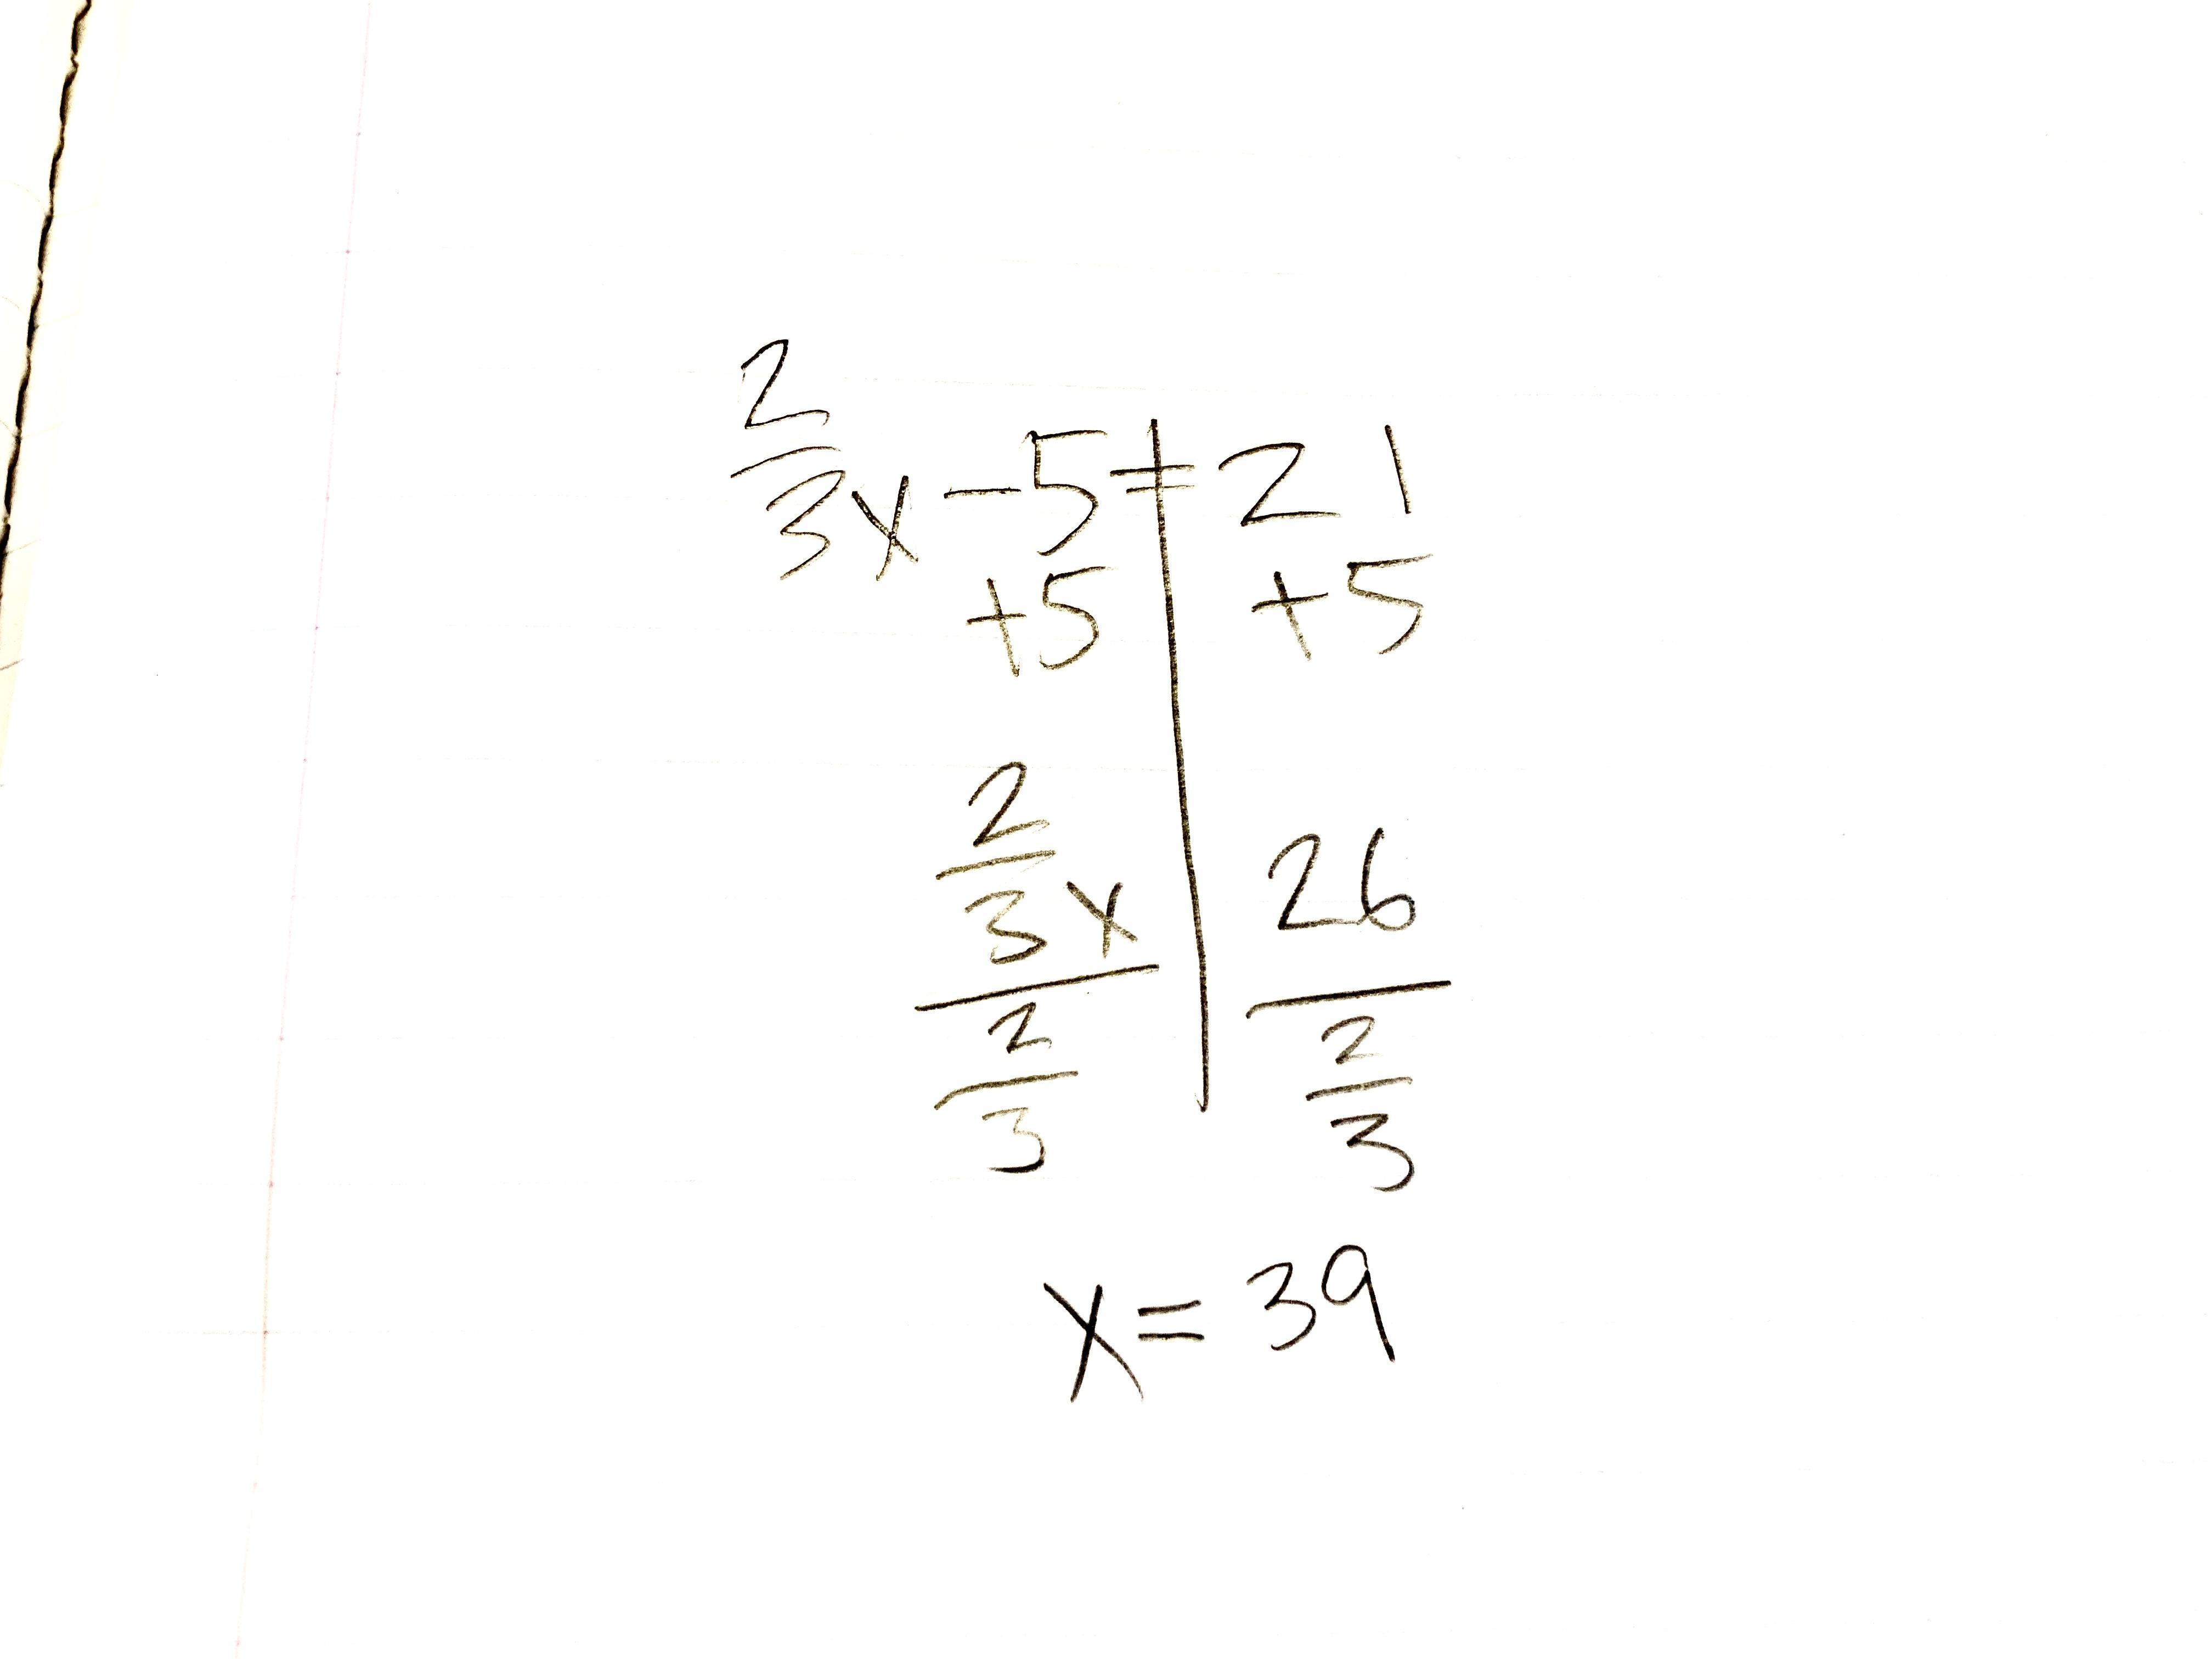 2/3x - 5 = 21
+5 +5
2/3x 26
2/3 2/3
x = 39